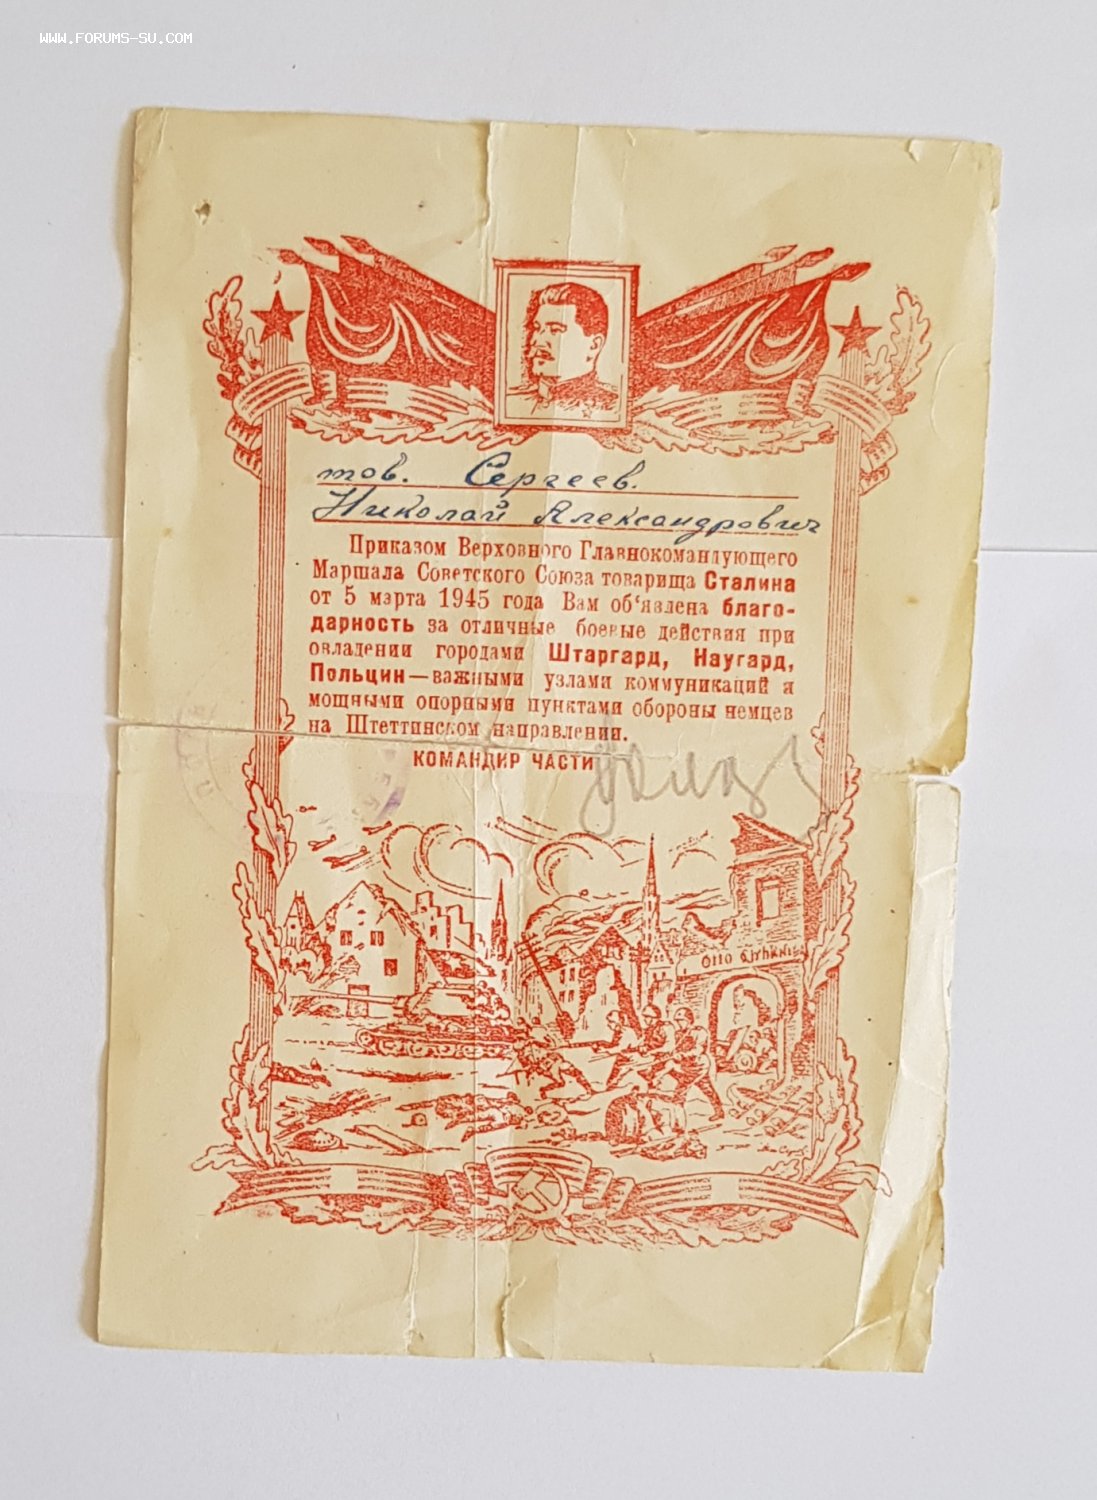 WWW.FORUMS-SU.COM
тов. Сергеев.
Николай Александрович
Приказом Верховного Главнокомандующего
Маршала Советского Союза товарища Сталина
от 5 марта 1945 года Вам об‘явлена благо-
дарность за отличные боевые действия при
овладении городами Штаргард, Наугард,
Польцин—важными узлами коммуникаций и
мощными опорными пунктами обороны немцев
на Штеттинском направлении.
КОМАНДИР ЧАСТИ
Otto